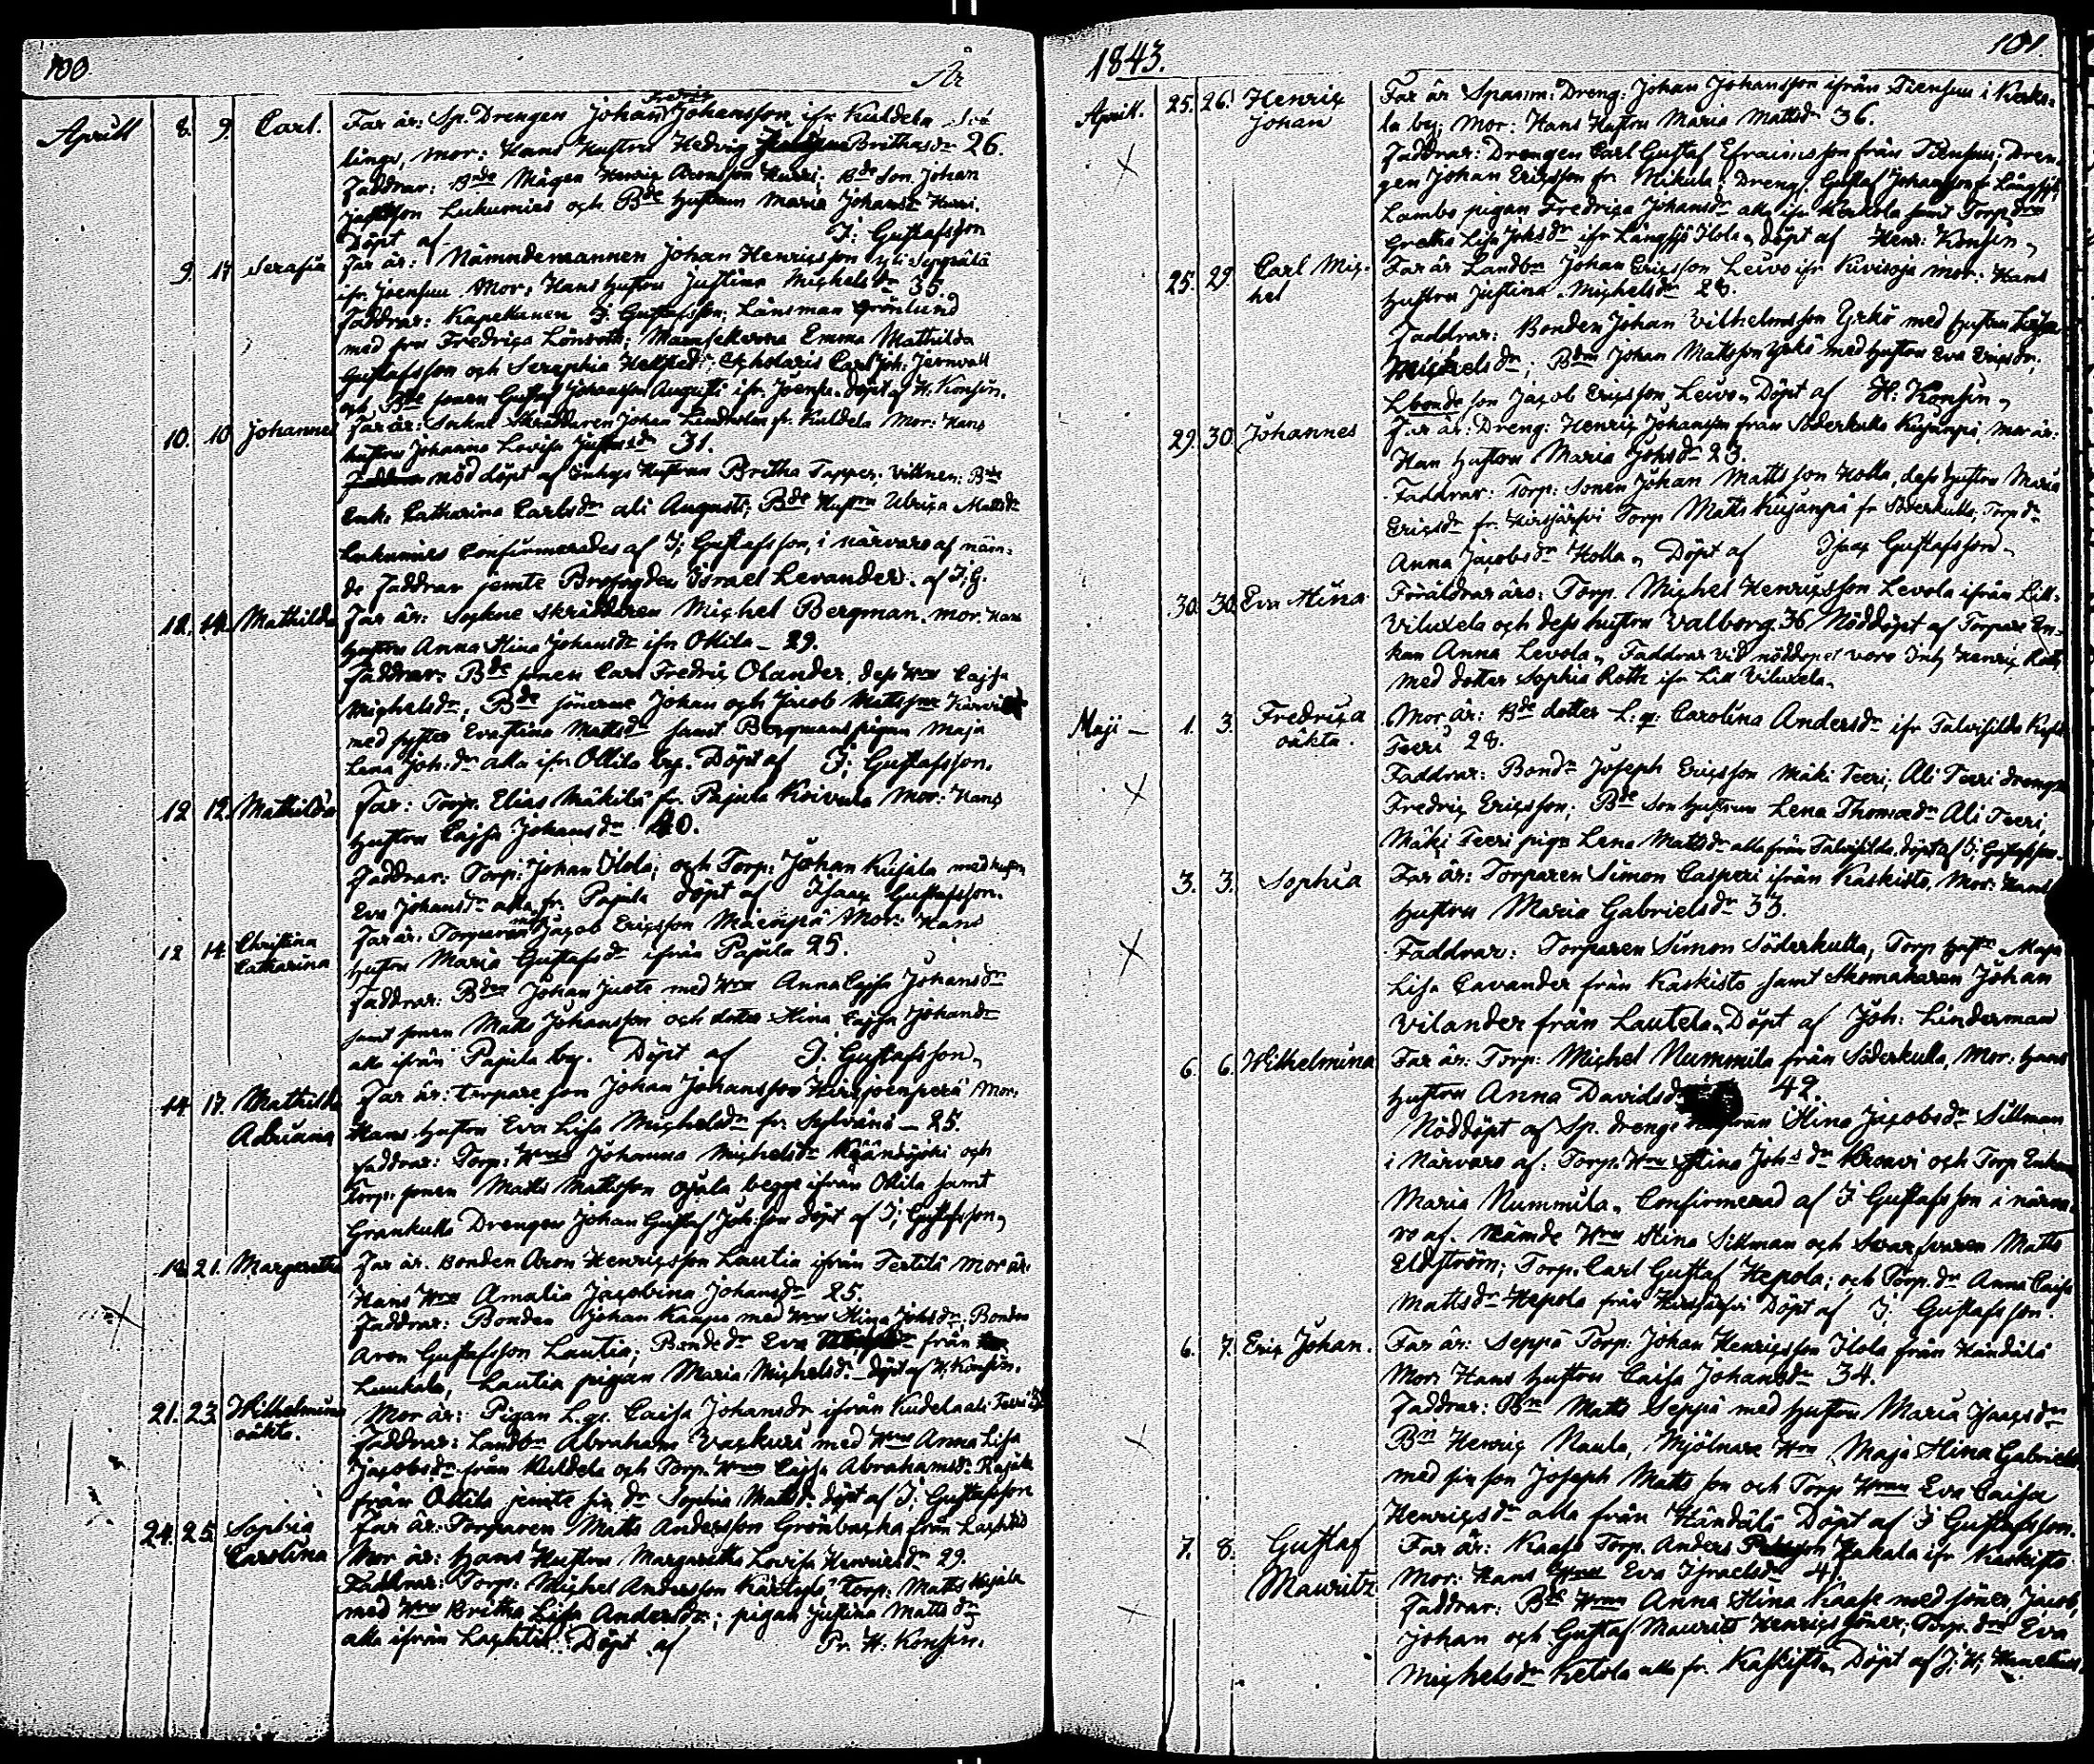 100.
År
Aprill 8. 9. Carl. Far är: Sp. Drengen Johan Fredric Johansson, ifr Kuldela
lings, mor: Hans Hustru Hedvig Brithasdr 26.
Faddrar: Bnde Mågen Henric Aronsson Kurri; Bde Son Johan
son Lukumies och Bde hustrun Maria Johansdr Kurri.
Döpt af J: Gustafsson
9. 17 Serafia Far är: Nämndemannen Johan Henricsson Yli Seppälä
ifr Joensuu Mor: Hans hustru Justina Michelsdr 35
Faddrar: Kapellanen J. Gustafsson; Länsman Grönlund
med fru Fredrica Lönroth; Mamsellerna Emma Mathilda
Gustafsson och Seraphia ; Scholaris Carl Joh: Jernvall
och Bde sonen Gustaf Johansson Augusti ifr Joensuu. Döpt af H. Konsin.
10. 10 Johannes Far är: Sockne Skräddaren Johan Lindholm fr. Kuldela Mor: Hans
hustru Johanna Lovisa 31.
nöddöpt af Hustrun Britha Tapper; vittnen: Bde
Enk: Catharina Carlsdr ali Augusti; Bde Hustru Ulrica Mattsdr
Lukumies Confirmerades af J; Gustafsson, i närvaro af näm-
de Faddrar jemte Brofogden Israel Levander. af J; G.
12. 14. Mathilda Far är: Sockne skräddaren Michel Bergman. mor: Hans
hustru Anna Stina Johansdr ifr Ollila – 29.
Faddrar: Bde sonen Carl Fredric Olander, dess Hru Cajsa
Michelsdr; Bde sönerne Johan och Jacob Mattssner
med syster Evastina Mattsdr samt Bergmans pigan Maja
Lena Joh:dr alla ifr Ollila by. Döpt af J; Gustafsson.
12 12. Mathilda Far: Torp. Elias Mäkilä fr. Pajula Koivula Mor: Hans
hustru Cajsa Johansdr 40.
Faddrar: Torp: Johan Ilola; och Torp: Johan Kujala med hustru
Eva Johansdr alla fr. Pajula döpt af Isaac Gustafsson.
12 14. Christina Catharina Far är: Torparemåg Jacob Ericsson Mäenpä Mor: Hans
hustru Maria Gustafsdr ifrån Pajula 25.
Faddrar: Bden Johan Juste med Hru Anna Cajsa Johansdr
samt sonen Matts Johansson och dotter Stina Cajsa Johansdr
alla ifrån Pajula by. Döpt af J. Gustafsson
14 17. Mathilda Adriana Far är: torpare son Johan Johansson Hirsjoenperä Mor:
Hans hustru Eva Lisa Michelsdr fr. Sylvänä – 25.
faddrar: Torp: Hrun Johanna Michelsdr och
Torp: sonen Matts Mattsson Ojala begge ifrån Ollila samt
Grankulla Drengen Johan Gustaf Joh:son döpt af J; Gustafsson
21. Margaretha Far är. Bonden Aron Henricsson Lautia ifrån Terttilä Mor är:
Hans Hru Amalia Jacobina Johansdr 25.
Faddrar: Bonden Johan Kaapo med Hru Stina Johsdr; Bonden
Aron Gustafsson Lautia; Bondedr Eva från
Luukala, Lautia pigan Maria Michelsd. – döpt af H. Konsin.
21. 23. Wilhelmina oäkta. Mor är: Pigan L. gr. Caisa Johansdr ifrån Kudela ali Teeri
Faddrar: Landbn Abraham med Hru Anna Lisa
Jacobsdr från Kuldela och Torp. Hrun Cajsa Abrahamsdr Rajala
från Ollila jemte sin dr Sophia Mattsdr döpt af J; Gustafsson
24. 25. Sophia Carolina Far är: Torparen Matts Andersson Grönbacka från Laghtis
Mor är: Hans Hustru Margaretha Lovisa Henricsdr 29.
Faddrar: Torp: Michel Andersson Torp: Matts Kujala
med Hru Britha Lisa Andersdr; pigan Justina Mattsdr
alla ifrån Laghtis. Döpt af Pr. H. Konsin.
1843.
101.
Aprill. 25. 26. Henric Johan Far är Spanm: Dreng: Johan Johansson ifrån Tiensuu i Kerko-
la by; Mor: Hans Hustru Maria Mattsdr 36.
Faddrar: Drengen Carl Gustaf Efraimsson från Tiensuu; Dren-
gen Johan Ericsson fr. Mikula; Drengs Gustaf Johansson fr Långsjö;
Lambo pigan Fredrica Johansdr alla ifr Kerkola samt Torpdrn
Gretha Lisa Johsdr ifr Långsjö Ilola, döpt af Henr: Konsin,
25. 29. Carl Michel Far är Landbn Johan Ericsson Leivo ifr Kuvisoja mor: Hans
hustru Justina Michelsdr 28.
Faddrar: Bonden Johan Vilhelmsson Yrkö med hustru Lisa
Michelsdr; Bdn Johan Mattsson Yrkö med hustru Eva Ericsdr;
Lbondeson Jacob Ericsson Leivo, Döpt af H: Konsin,
29. 30 Johannes Far är: Dreng: Henric Johansson från Söderkulla Kujanpä, Mor är:
Han hustru Maria Johsdr 23.
Faddrar: Torp: Sonen Johan Mattsson Kolla, dess hustru Maria
Ericsdr fr. Hirsjärfvi Torp Matts Kujanpä fr Söderkulla; Torp dr
Anna Jacobsdr Kolla, Döpt af Isaac Gustafsson
30. 30. Eva Stina Föräldrar äro: Torp. Michel Henricsson Levola ifrån Lill-
Viluxela och dess hustru Valborg 36 Nöddöpt af Torpare En-
kan Anna Levola, Faddrar vid nöddopet voro Inh Henric Roth
med dotter Sophia Roth ifr Lill Viluxela,
Maji – 1. 3. Fredrica oäkta. Mor är: Bde dotter L: gr: Carolina Andersdr ifr Talvisilda
Teeri 28.
Faddrar: Bondn Joseph Ericsson Mäki Teeri, Ali Teeri drengn
Fredric Ericsson; Bde Son hustrun Lena Thomædr Ali Teeri,
Mäki Teeri piga Lena Mattsdr alla från Talvisilda, döpt af J; Gustafsson.
3. 3. Sophia Far är: Torparen Simon Casperi ifrån Kaskisto, Mor: Hans
hustru Maria Gabrielsdr 33.
Faddrar: Torparen Simon Söderkulla, Torp hustr Maja
Lisa Cavander från Kaskisto samt Skomakaren Johan
Vilander från Lautela, Döpt af Joh: Linderman
6. 6. Wilhelmina Far är: Torp: Michel Nummila från Söderkulla, Mor: hans
hustru Anna Davidsdr 42.
Nöddöpt af Sp. drengs Stina Jacobsdr Sillman
i Närvaro af: Torp. Hru Stina Johsdr och Torp Enkan
Maria Nummila, Confirmerad af J Gustafsson i närva-
ro af. Nämde Hru Stina Sillman och Svarfvaren Matts
Eldström; Torp. Carl Gustaf Hepola; och Torp. dr Anna Caisa
Mattsdr Hepola från Hirsjärfvi Döpt af J; Gustafsson.
6. 7. Eric Johan. Far är: Seppä Torp: Johan Henricsson Ilola från Händälä
Mor: Hans hustru Caisa Johansdr 34.
Faddrar: Bn Matts Seppä med hustru Maria Isacsdr
Bn Henric Naula, Mjölnare Hru Maja Stina Gabrielsd.
med sin son Joseph Mattsson och Torp Hrun Eva Caisa
Henricsdr alla från Händälä Döpt af J Gustafsson.
7. 8. Gustaf Mauritz Far är: Kaase Torp. Anders Hakala ifr Kaskisto
Mor: Hans Hru Eva Israelsdr 41.
Faddrar: Bde Hrun Anna Stina Kaase med söner, Jacob,
Johan och Gustaf Maurits Henrics söner; Torp. drn Eva
Michelsdr Ketola alla fr. Kaskisto, Döpt af J; H;